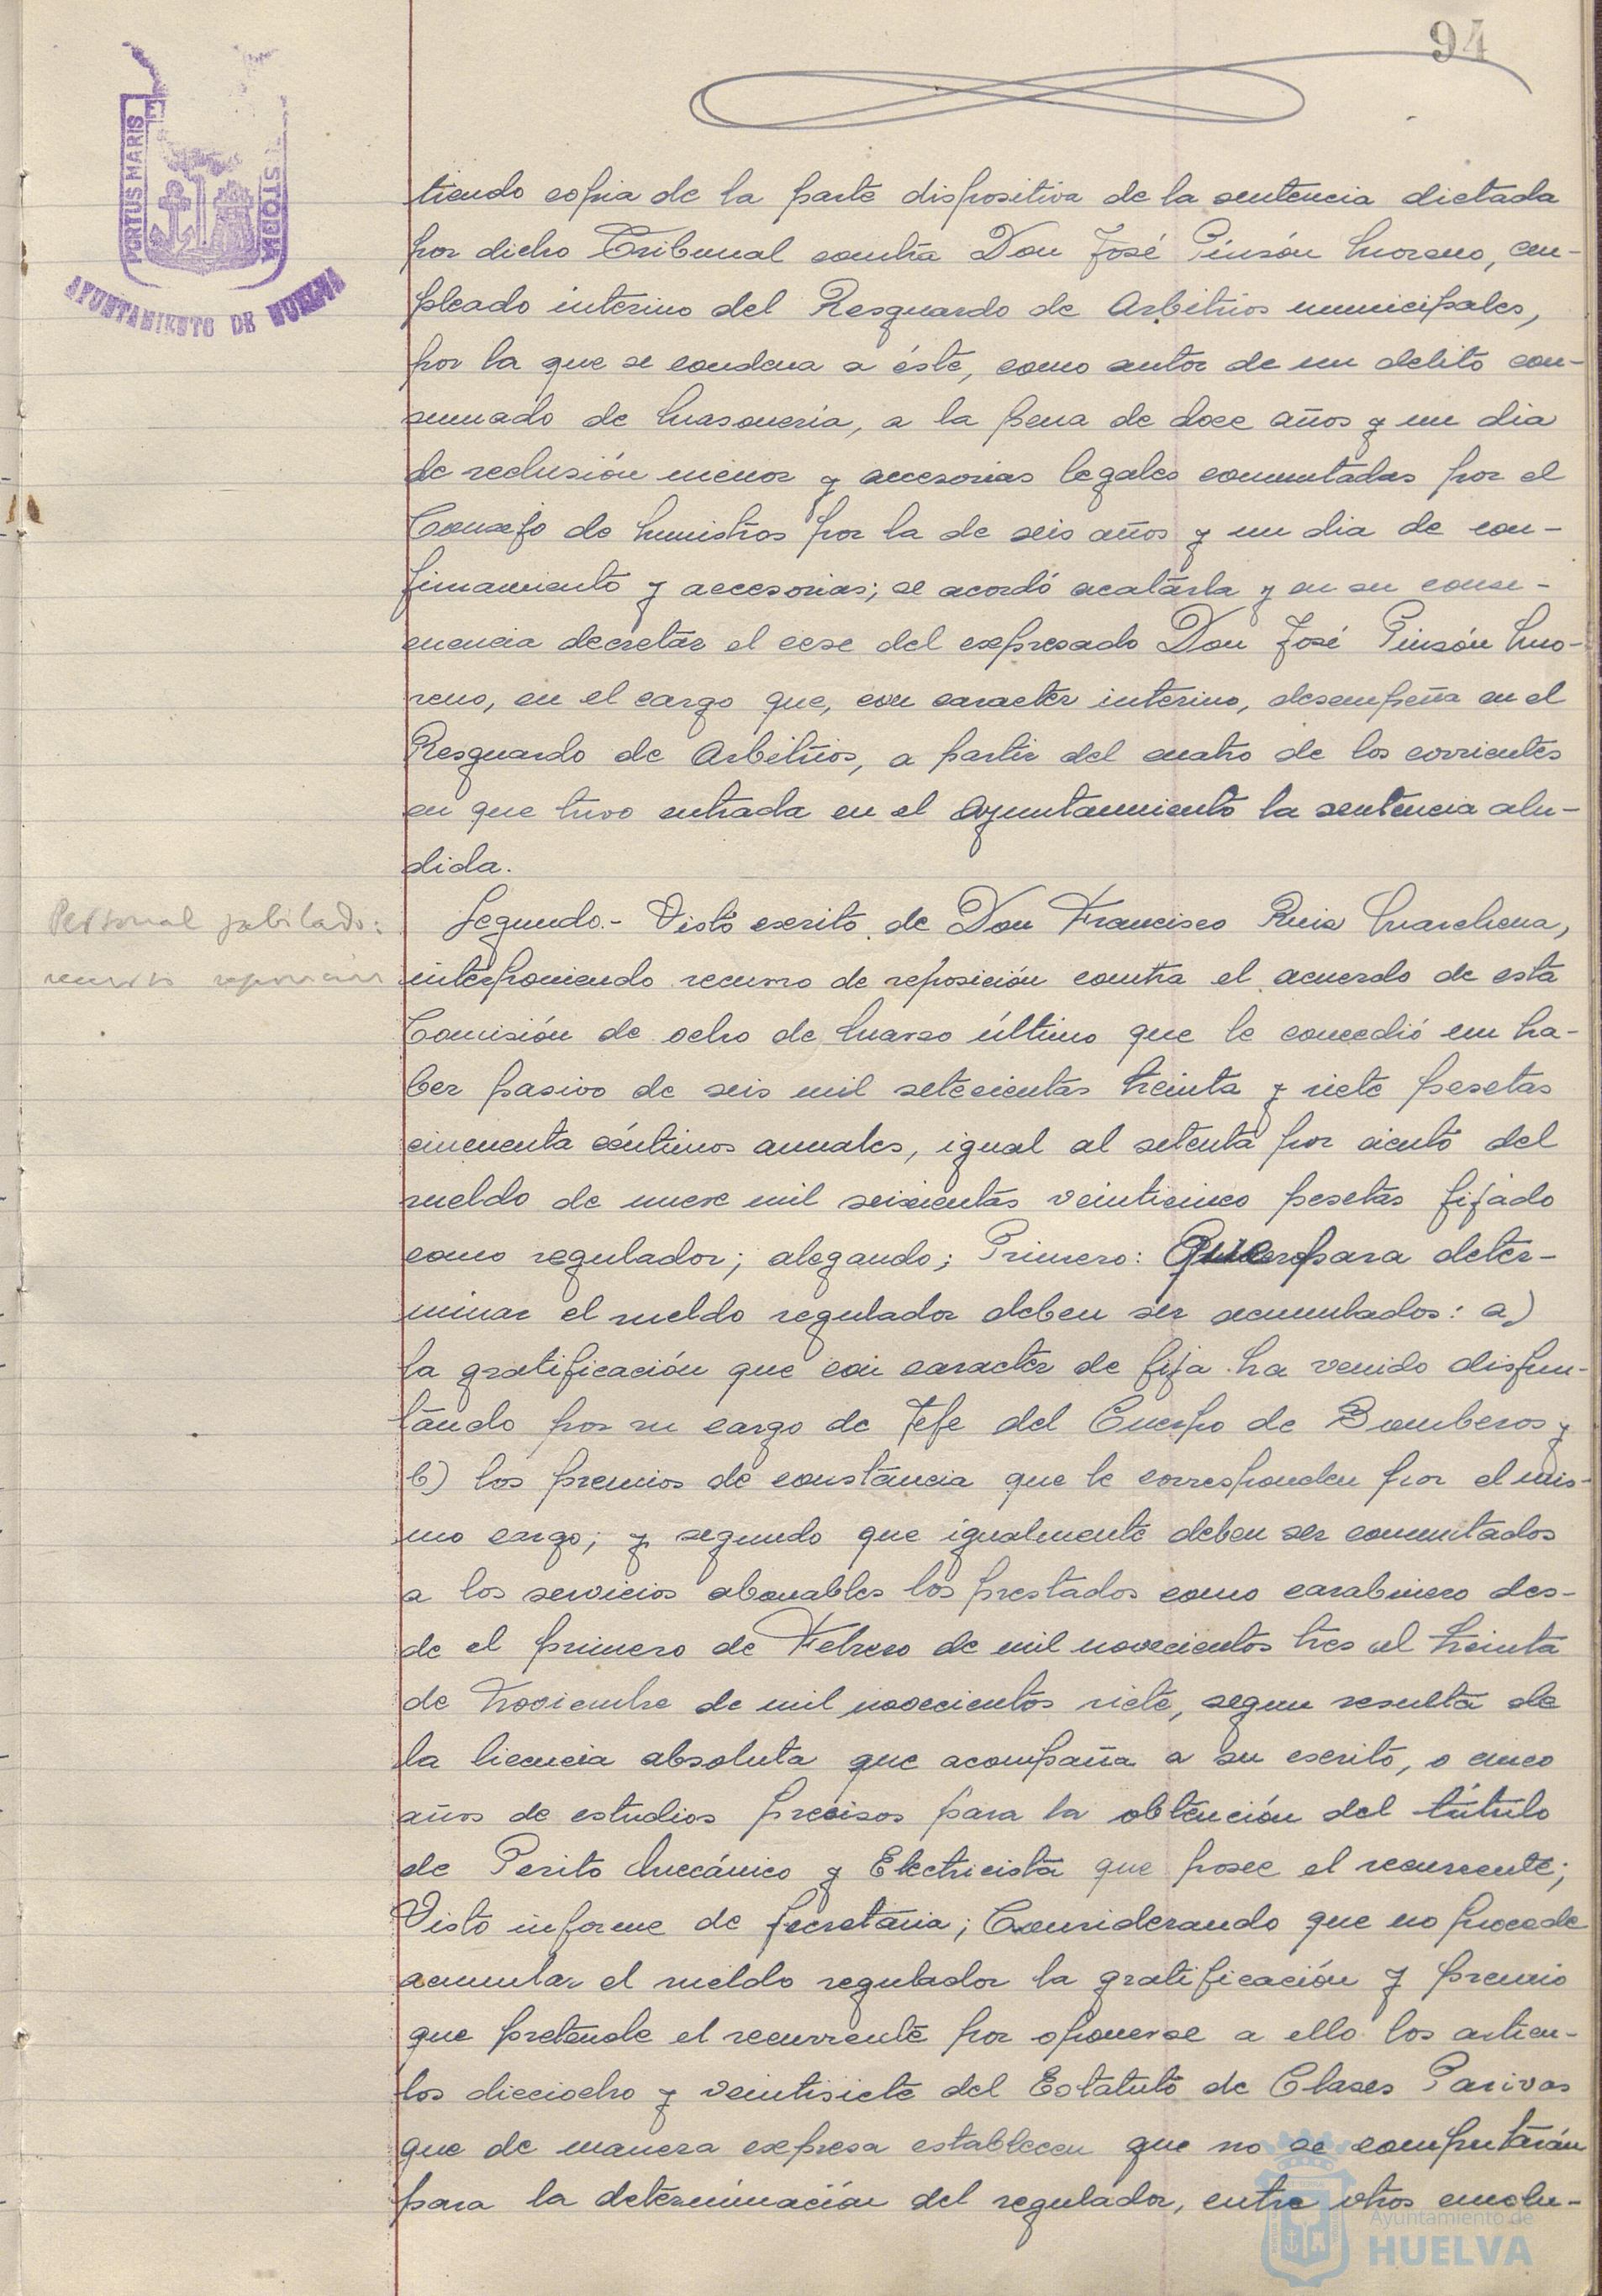 94
PORTUS MARIS E
STODIA
AYUNTAMIENTO DE HUELVA
tiendo copia de la parte dispositiva de la sentencia dictada
por dicho Tribunal contra Don José Pinzón Moreno, em-
pleado interino del Resguardo de Arbitrios municipales,
por la que se condena a éste, como autor de un delito con-
sumado de Masonería, a la pena de doce años y un dia
de reclusión menor y accesorias legales conmutadas por el
Consejo de Ministros por la de seis años y un dia de con-
finamiento y accesorias; se acordó acatarla y en su conse-
cuencia decretar el cese del expresado Don José Pinzón Mo-
reno, en el cargo que, con caracter interino, desempeña en el
Resguardo de Arbitrios, a partir del cuatro de los corrientes
en que tuvo entrada en el Ayuntamiento la sentencia alu-
dida.
Personal jubilado:
recurso reposición
Segundo.- Visto escrito de Don Francisco Ruiz Marchena,
interponiendo recurso de reposición contra el acuerdo de esta
Comisión de ocho de Marzo último que le concedió un ha-
ber pasivo de seis mil setecientas treinta y siete pesetas
cincuenta céntimos anuales, igual al setenta por ciento del
sueldo de nueve mil seiscientas veinticinco pesetas fijado
como regulador; alegando; Primero: Que para deter-
minar el sueldo regulador deben ser acumulados: a)
la gratificación que con caracter de fija ha venido disfru-
tando por su cargo de Jefe del Cuerpo de Bomberos y
b) los premios de constancia que le corresponden por el mis-
mo cargo; y segundo que igualmente deben ser conmutados
a los servicios abonables los prestados como carabinero des-
de el primero de Febrero de mil novecientos tres al treinta
de Noviembre de mil novecientos siete, segun resulta de
la licencia absoluta que acompaña a su escrito, o cinco
años de estudios precisos para la obtención del título
de Perito Mecánico y Electricista que posee el recurrente;
Visto informe de Secretaria; Considerando que no procede
acumular el sueldo regulador la gratificación y premio
que pretende el recurrente por oponerse a ello los articu-
los dieciocho y veintisiete del Estatuto de Clases Pasivas
que de manera expresa establecen que no se computarán
para la determinación del regulador, entre otros emolu-
Ayuntamiento de
HUELVA